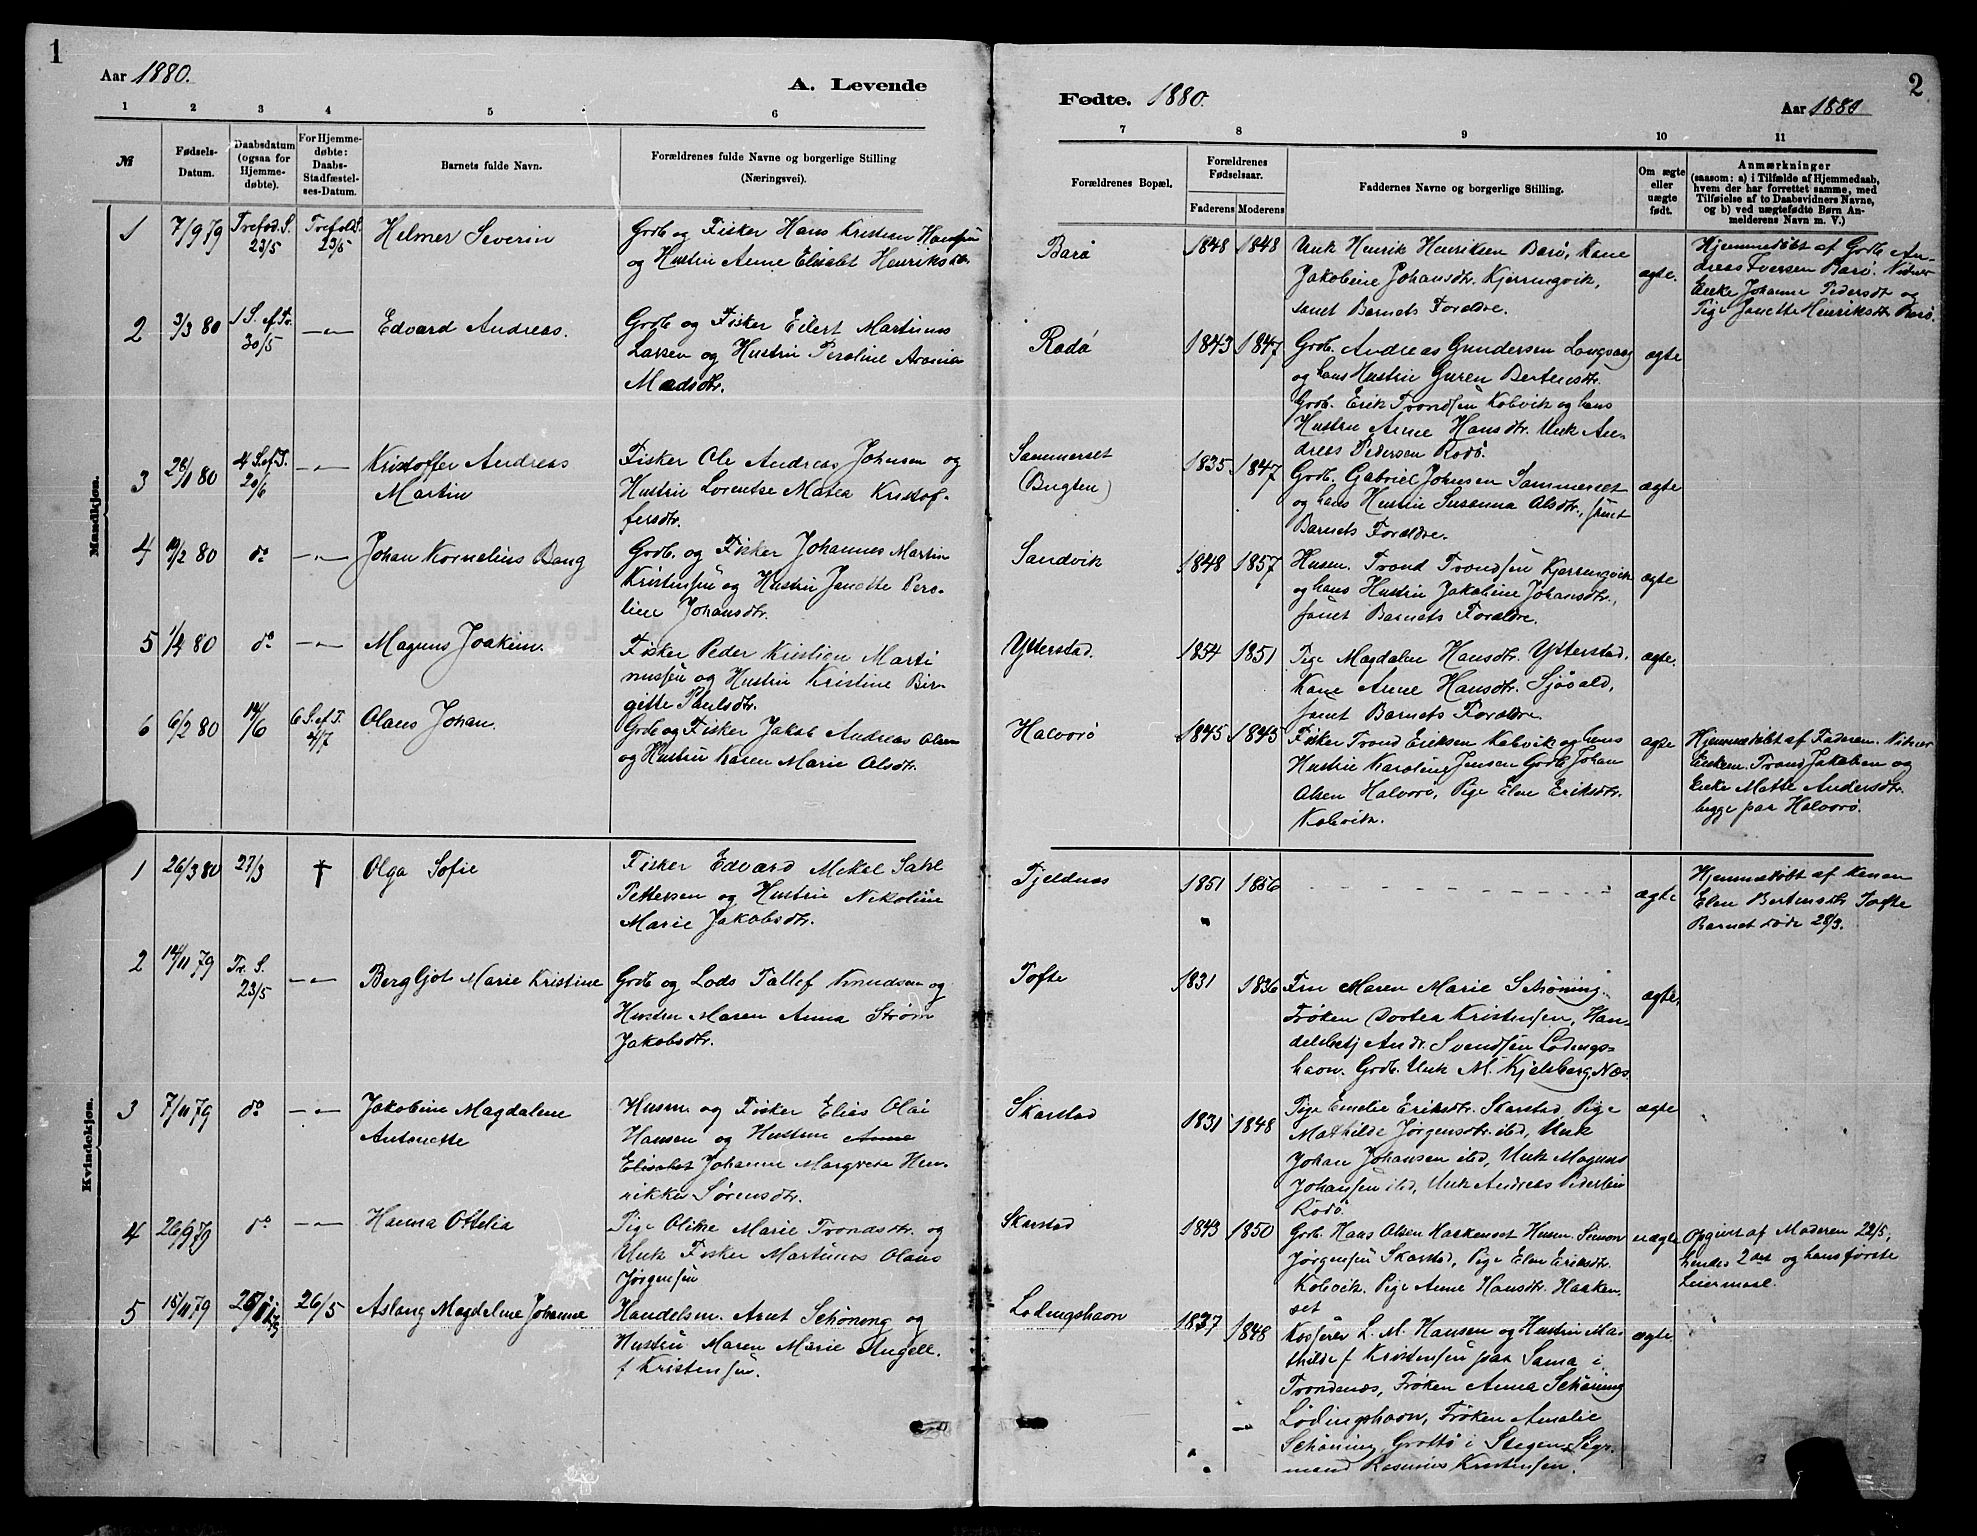 1
Aar 1880.
A. Levende
1 2 3 4 5 6
№
Fødsels-Datum.
Daabsdatum (ogsaa for Hjemmedøbte).
For Hjemmedøbte: Daabs-Stadfæstelses-Datum.
Barnets fulde Navn.
Forældrenes fulde Navne og borgerlige Stilling (Næringsvei).
Mandkjøn.
1 7/9 79 Trefod. S. 23/5 Trefold. S. 23/5 Helmer Severin
Grdb og Fisker Hans Kristian Hansen
og Hustru Anne Elisabet Henriksdtr.
2 3/3 80 1 S. ef Tr. 30/5 -"- Edvard Andreas.
Grdb og Fisker Eilert Martinus
Larsen og Hustru Peroline Aronia
Madsdtr.
3 28/1 80 4 S. ef T. 20/6 -"- Kristoffer Andreas
Martin
Fisker Ole Andreas Johnsen og
Hustru Lorentse Matea Kristof-
fersdtr.
4 /2 80 do -"- Johan Kornelius Bang
Grdb. og Fisker Johannes Martin
Kristensen og Hustru Janette Pero-
line Johansdtr.
5 1/4 80 do -"- Magnus Joakim.
Fisker Peder Kristian Marti
nussen og Hustru Kristine Bir-
gitte Paulsdtr.
6 6/2 80 14/6 6 S. ef T. 4/7 Olaus Johan.
Grdb og Fisker Jakob Andreas Olsen
og Hustru Karen Marie Olsdtr.
Kvindekjøn.
1 26/3 80 27/3 † Olga Sofie
Fisker Edvard Mekal
Pettersen og Hustru Nikoline
Marie Jakobsdtr.
2 14/11 79 Tr. S. 23/5 -"- Bergljot Marie Kristine
Grdb og Lods Tallef Knudsen og
Hustru Maren Anna Strøm
Jakobsdtr.
3 7/11 79 do -"- Jakobine Magdalene
Antonette
Husm og Fisker Elias Olai
Hansen og Hustru Anne
Elisabet Johanne Margrete Hen-
rikke Sørensdtr.
4 26/9 79 do -"- Hanna Ottelia
Pige Olike Marie Trondsdtr. og
Unk Fisker Martinus Olaus
Jørgensen
5 15/11 79 26/5 Aslaug Magdalene Johanne
Handelsm. Arnt Schøning og
Hustru Maren Marie Angell.
f Kristensen.
2
Fødte. 1880.
Aar 1880
7 8 9 10 11
Forældrenes Bopæl.
Forældrenes Fødselsaar.
Faderens Moderens
Faddernes Navne og borgerlige Stilling.
Om ægte eller uægte født.
Anmærkninger
(saasom: a) i Tilfælde af Hjemmedaab,
hvem der har forrettet samme, med
Tilføielse af to Daabsvidners Navne,
og b) ved uægtefødte Børn An-
melderens Navn m. V.)
Barø 1848 1848
Unk Henrik Henriksen Barø, Kone
Jakobine Johansdtr. Kjerringvik,
samt Barnets Forældre.
ægte.
Hjemmedøbt af Grdb An-
dreas Iversen Barø. Vidner
Enke Johanne Pedersdt og
Pige Janette Henriksdt Barø.
Rødø 1843 1847
Grdb. Andreas Gundersen Langvaag
og hans Hustru Guren Berteusdtr.
Grdb. Erik Trondsen Kobvik og hans
Hustru Anne Hansdtr. Unk An-
dreas Pedersen Rodø.
ægte
Sammerset
(Bugten)
1835 1847
Grdb. Gabriel Johnsen Sammerset
og hans Hustru Susanna Olsdtr., samt
Barnets Forældre.
ægte
Sandvik 1848 1857
Husm. Trond Trondsen Kjerringvik
og hans Hustru Jakobine Johansdtr.,
samt Barnets Forældre.
ægte
Ytterstad. 1854 1851
Pige Magdalene Hansdtr. Ytterstad,
Kone Anne Hansdtr. Sjøvold,
samt Barnets Forældre.
ægte.
Halvorø 1845 1843
Fisker Trond Eriksen Kobvik og hans
Hustru Karoline Jensen Grdb Johan
Olsen Halvorø, Pige Elen Eriksdtr.
Kobvik.
ægte
Hjemmedøbt af Faderen. Vidner
Enkem. Trond Jakobsen og
Enke Matte Andersdtr.
begge paa Halvorø.
Tjeldnes 1851 1856
ægte
Hjemmedøbt af Konen
Elen Berteusdtr Tofte
Barnet døde 28/3.
Tofte 1831 1836
Fru Maren Marie Schøning.
Frøken Dortea Kristensen, Han-
delsbetj Andr. Svendsen Lødings-
havn. Grdb. Unk M. Kjelsberg, Næs.
ægte.
Skarstad 1831 1848
Pige Emelie Eriksdtr. Skarstad, Pige
Mathilde Jørgensdtr. ibd, Unk
Johan Johansen ibd, Unk Magnus
Johansen ibd, Unk Andreas Pedersen
Rodø.
ægte
Skarstad 1843 1850
Grdb. Haas Olsen Haakenset Husm. Simon
Jørgensen Skarstad, Pige Elen Eriksdtr.
Kobvik. Pige Anne Hansdtr. Haaken
set
uægte
Opgivet af Moderen 22/5,
hendes 2det og hans første
Leiermaal.
Lødingshavn 1837 1848
Kasserer L. M. Hansen og Hustru Ma-
thilde f Kristensen paa Sama i
Trondenæs, Frøken Anna Schøning
Lødingshavn, Frøken Amalie
Schøning, Grøttø i Stegen, Styr-
mand Rasmus Kristensen.
ægte